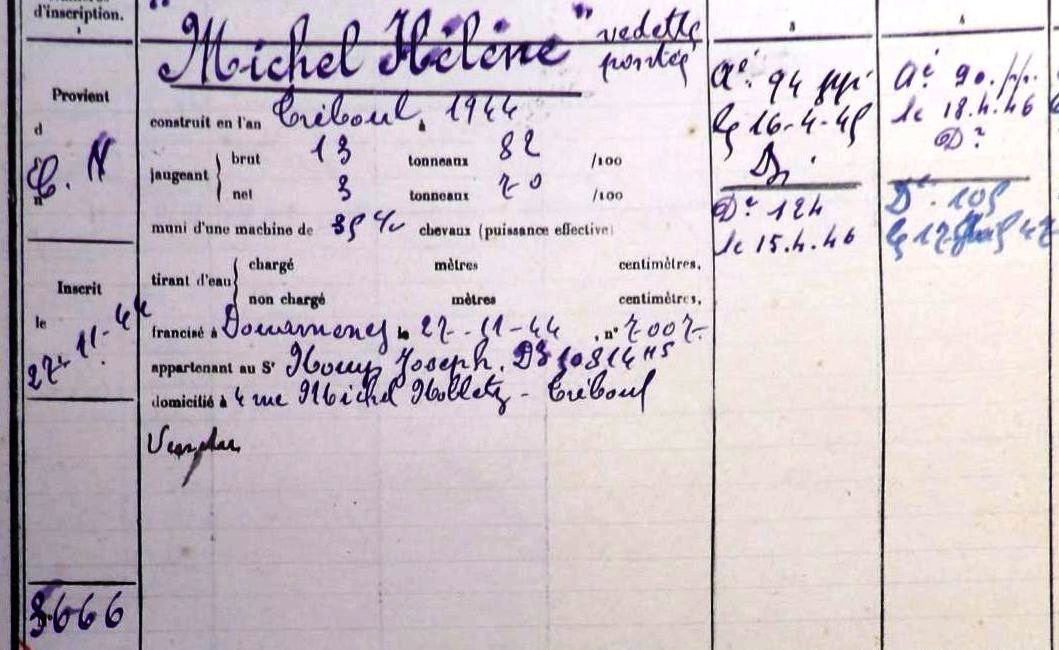 Numéros
d'inscription.
1
Provient
d
C. N
n
Inscrit
le
27-11-44
3666
"Michel Hélène" vedette
pontée
construit en l'an Tréboul, 1944
jaugeant
brut 13 tonneaux 82 /100
net 3 tonneaux 70 /100
muni d'une machine de 35 chevaux (puissance effective)
tirant d'eau
chargé mètres centimètres,
non chargé mètres centimètres,
francisé à Douarnenez le 27-11-44 , n° 7007
appartenant au Sr Joseph. Dz 10814 HS
domicilié à 4 rue Michel - Tréboul
3
At: 94
le 16-4-45
Dz
Dt 124
le 15.4.46
4
At 90.
le 18.4.46
Dt
Dt. 105
le 17 47